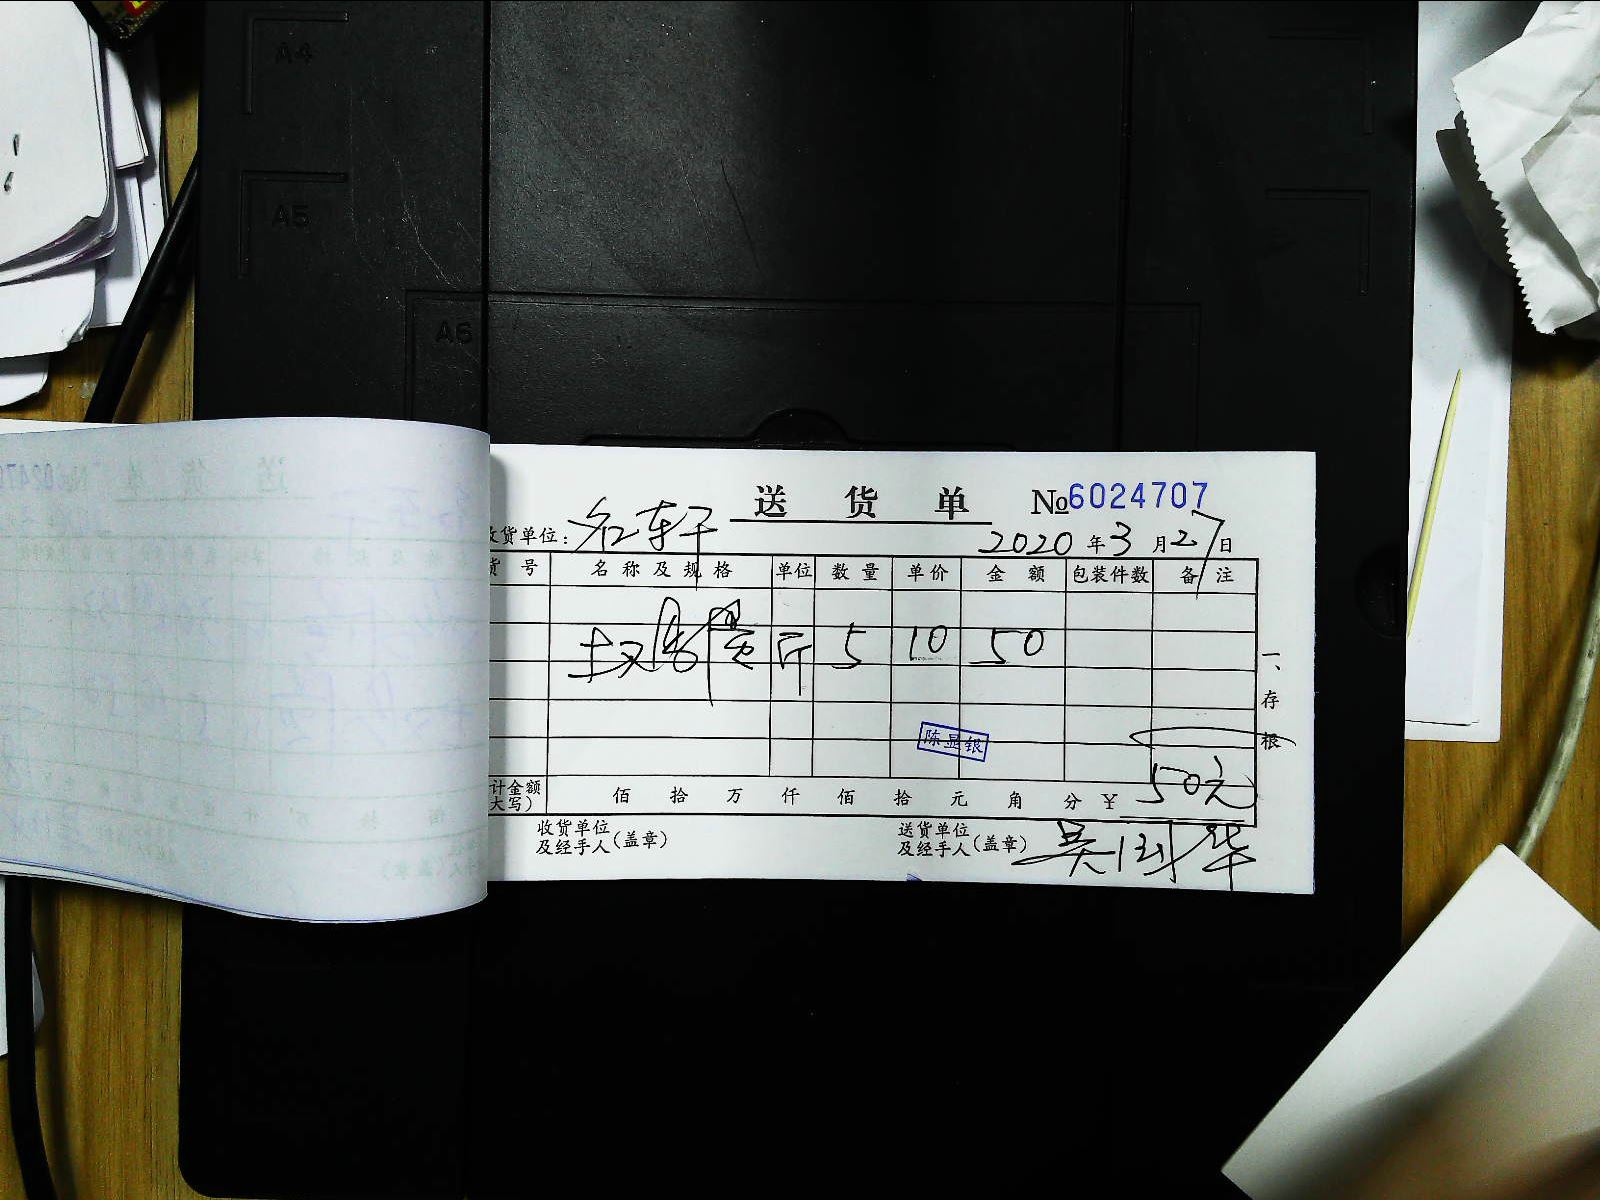 A4
A5
A6
送货单 №6024707
收货单位: 名轩
2020年3月27日
货号 名称及规格 单位 数量 单价 金额 包装件数 备注
土鸡蛋 斤 5 10 50
一、存根
陈显银
计金额
大写) 佰 拾 万 仟 佰 拾 元 角 分 ¥ 50元
收货单位
及经手人(盖章)
送货单位
及经手人(盖章) 吴国华